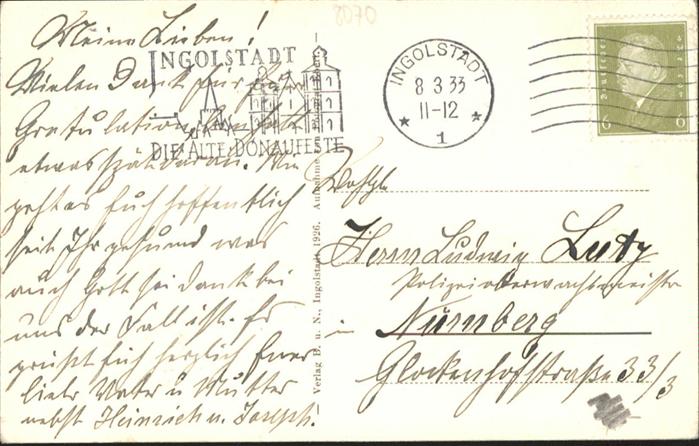 8070
Meine Lieben!
INGOLSTADT
DIE ALTE DONAUFESTE
Vielen Dank für
Gratulation
etwas spät daran. Wie
geht es Euch hoffentlich
seit Ihr gesund was
auch Gott sei dank bei
uns der Fall ist. Es
grüßt Euch herzlich Euer
lieber Vater u Mutter
nebst Heinrich u. Joseph.
Verlag B. u. N., Ingolstadt 1926. Aufnahme
INGOLSTADT
8 3 33
11-12
* *
1
6 6
Herrn Ludwig Lutz
Polizeioberwachtmeister
in Nürnberg
Glockenhofstraße 33/3